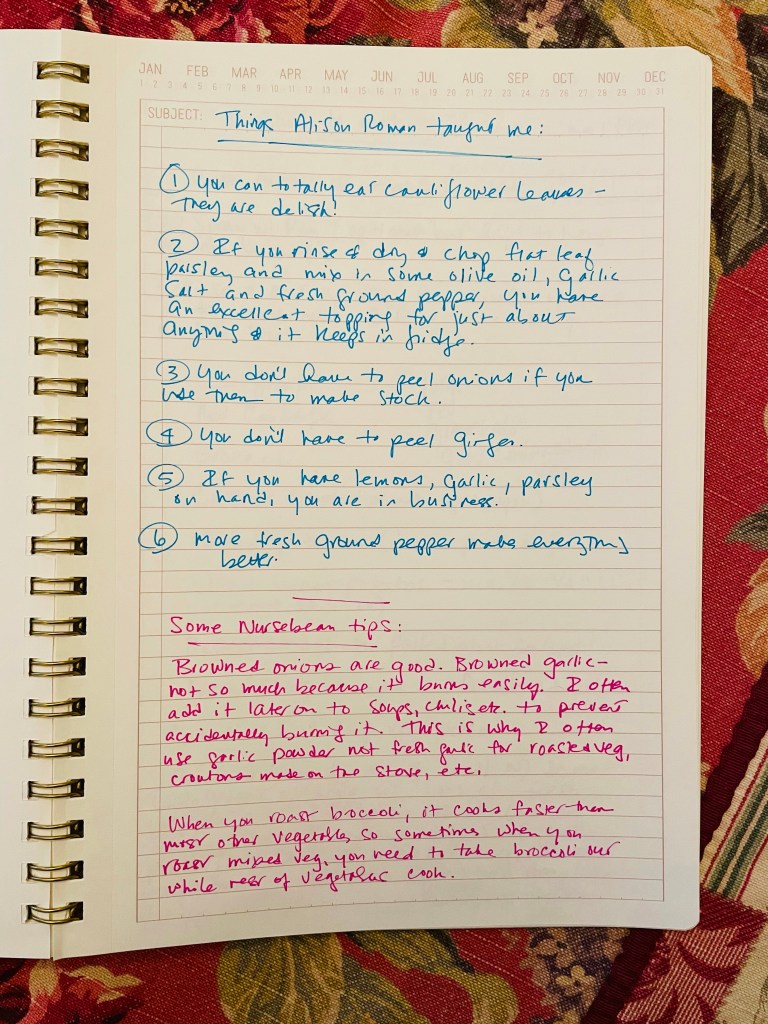 JAN FEB MAR APR MAY JUN JUL AUG SEP OCT NOV DEC
1 2 3 4 5 6 7 8 9 10 11 12 13 14 15 16 17 18 19 20 21 22 23 24 25 26 27 28 29 30 31
SUBJECT: Things Alison Roman taught me:
1 You can totally eat cauliflower leaves -
They are delish!
2 If you rinse & dry & chop flat leaf
parsley and mix in some olive oil, Garlic
Salt and fresh ground pepper, you have
an excellent topping for just about
anything & it keeps in fridge.
3 You don't have to peel onions if you
use them to make stock.
4 You don't have to peel ginger.
5 If you have lemons, Garlic, parsley
on hand, you are in business.
6 More fresh ground pepper makes everything
better.
Some Nursebean tips:
Browned onions are good. Browned garlic -
not so much because it burns easily. I often
add it later on to soups, chilis etc. to prevent
accidentally burning it. This is why I often
use garlic powder not fresh garlic for roasted veg,
croutons made on the stove, etc.
When you roast broccoli, it cooks faster than
most other vegetables, so sometimes when you
roast mixed veg, you need to take broccoli out
while rest of vegetables cook.